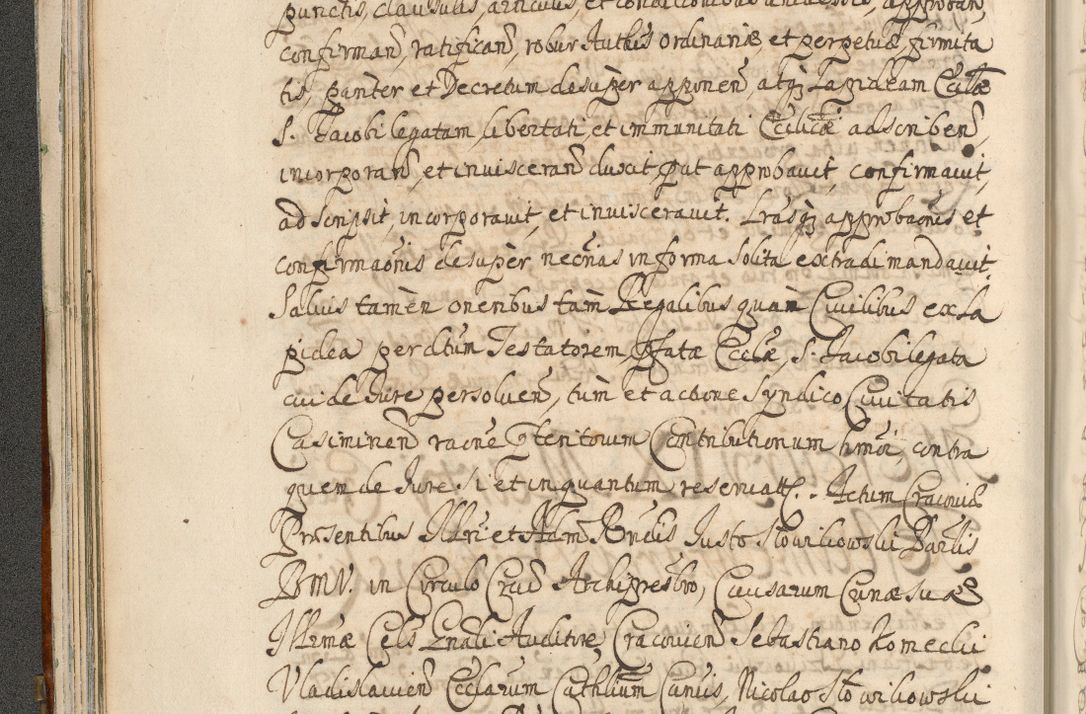 punctis, clausulis, articulis, et conditionibus universis, approban,
confirman, ratifican, robur Authis ordinariæ, et perpetuæ, firmita
tis, pariter et Decretum desuper apponen atq; Lapideam Ecclæ
S. Jacobi legatam, libertati, et immunitati Ecclicæ adscriben,
incorporan, et inivisceran duxit put approbavit, confirmavit,
adscripsit, incorporavit, et invisceravit. Lrasq; approbaonis et
confirmaonis desuper necrias in forma solita extradi mandavit.
Salvis tamen oneribus tam Regalibus quam Civilibus ex La
pidea per ditum Testatorem, pfatæ Ecclæ, S. Jacobi legata
cui de Jure persolven, tum et actione Syndico Civitatis
Casiminen raone pteritorum Contributionum hmoi, contra
quem de Jure si et in quantum reservatt. Actum Cracoviæ
Præsentibus Illri et Adm Rndis Justo Słowikowski Barlis
BMV. in Circulo Crac Archipresbro, Causarum Curiæ suæ
Illrmæ Cels Enali Auditore, Cracovien Sebastiano Komecki
Vladislavien Ecclarum Cathlium Canvis, Nicolao Słowikowski